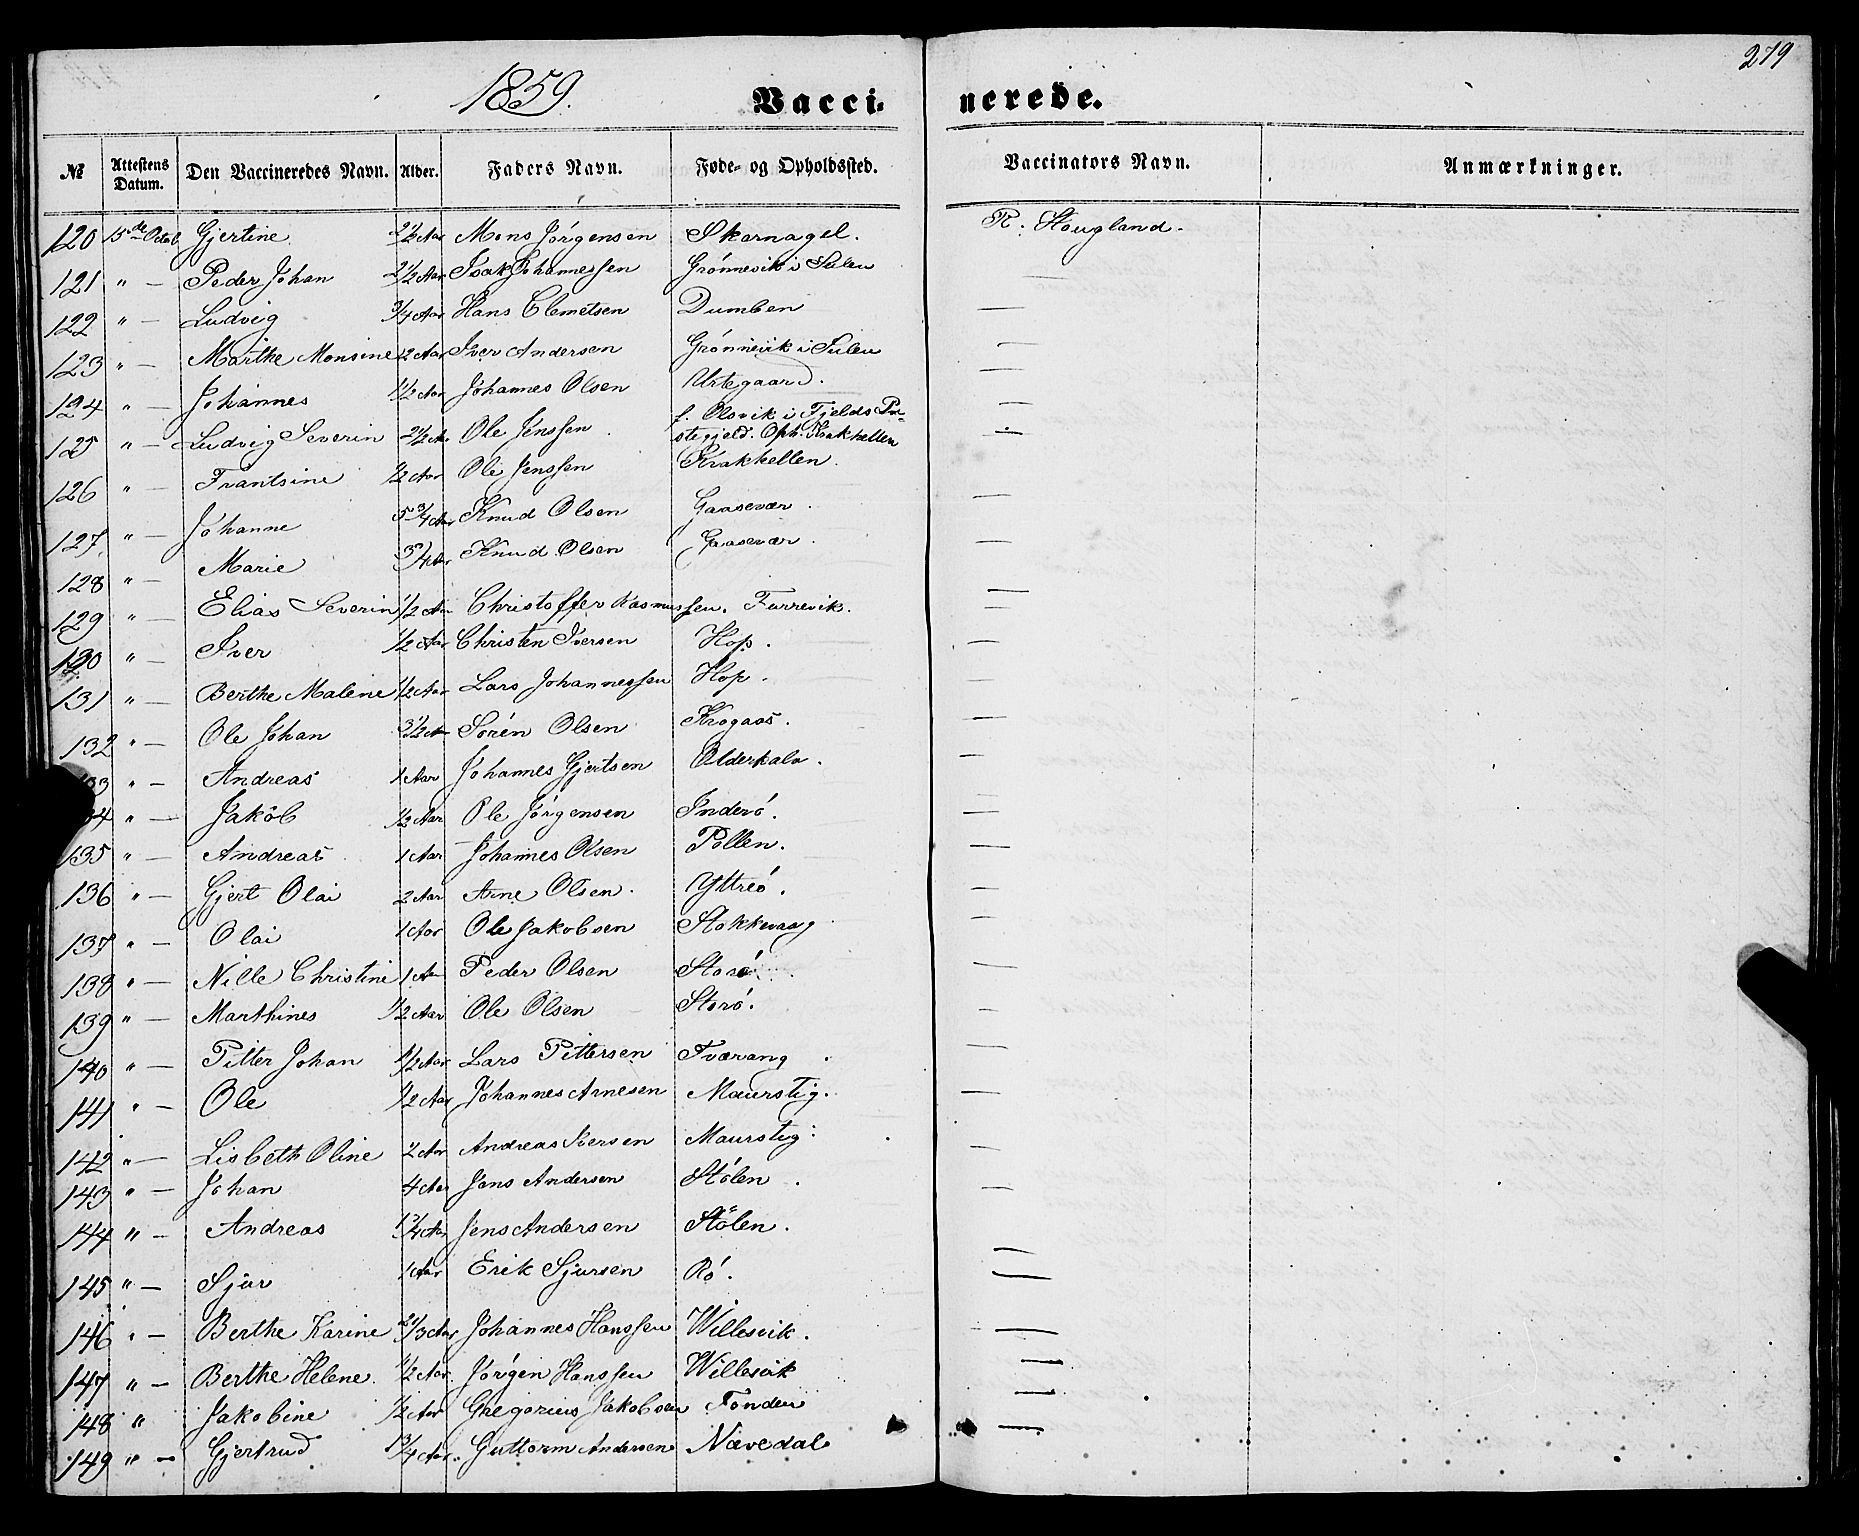 279
1859.
Vacci- nerede.
№ Attestens Datum. Den Vaccineredes Navn. Alder. Faders Navn. Føde- og Opholdssted. Vaccinators Navn. Anmærkninger.
120 15de Octob. Gjertine 2 1/2 Aar Mons Jörgensen Skarnagel. R. Hougland.
121 " — Peder Johan 2 1/2 Aar Isak Johannessen Grönnevik i Sulen —
122 " — Ludvig 3/4 Aar Hans Clemetsen Dumben —
123 " — Marthe Monsine 1/2 Aar Iver Andersen Grönnevik i Sulen —
124 " — Johannes 1 1/2 Aar Johannes Olsen Urtegaard. —
125 " — Ludvig Severin 2 1/2 A Ole Jenssen f. Olsvik i Fjelds Præ-
stegjeld. Oph. Krakhellen —
126 " — Frantsine 1/2 Aar Ole Jenssen Krakhellen. —
127 " — Johanne 5 3/4 Aar Knud Olsen Gaasevær. —
128 " — Marie 3/4 Aar Knud Olsen Gaasevær. —
129 " — Elias Severin 1/2 Aar Christoffer Rasmussen. Furrevik. —
130 " — Iver 1/2 Aar Christen Iversen Hop. —
131 " — Berthe Malene 1/2 Aar Lars Johannessen Hop. —
132 " — Ole Johan 3 1/2 Aar Sören Olsen Krogaas. —
133 " — Andreas 1 Aar Johannes Gjertsen Olderkalv. —
134 " — Jakob 1/2 Aar Ole Jörgensen Inderö. —
135 " — Andreas 1 Aar Johannes Olsen Pollen. —
136 " — Gjert Olai 2 Aar Arne Olsen. Yttreö. —
137 " — Olai 1 Aar Ole Jakobsen Stokkevaag —
138 " — Nille Christine 1 Aar Peder Olsen Storö. —
139 " — Marthines 1/2 Aar Ole Olsen Storö. —
140 " — Pitter Johan 1/2 Aar Lars Pittersen Tværang —
141 " — Ole 1/2 Aar Johannes Arnesen Maurstig. —
142 " — Lisbeth Oline 2 Aar Andreas Iversen Maurstig. —
143 " — Johan 4 Aar Jens Andersen Stölen. —
144 " — Andreas 1 3/4 Aar Jens Andersen Stölen. —
145 " — Sjur 1 Aar Erik Sjursen Rö. —
146 " — Berthe Karine 2 1/3 Aar Johannes Hanssen Willesvik. —
147 " — Berthe Helene. 1/2 Aar. Jörgen Hanssen Willesvik —
148 " Jakobine 1/2 Aar Gregorius Jakobsen Tonden —
149 " — Gjertrud 1 3/4 Aar. Guttorm Andersen Nævedal —